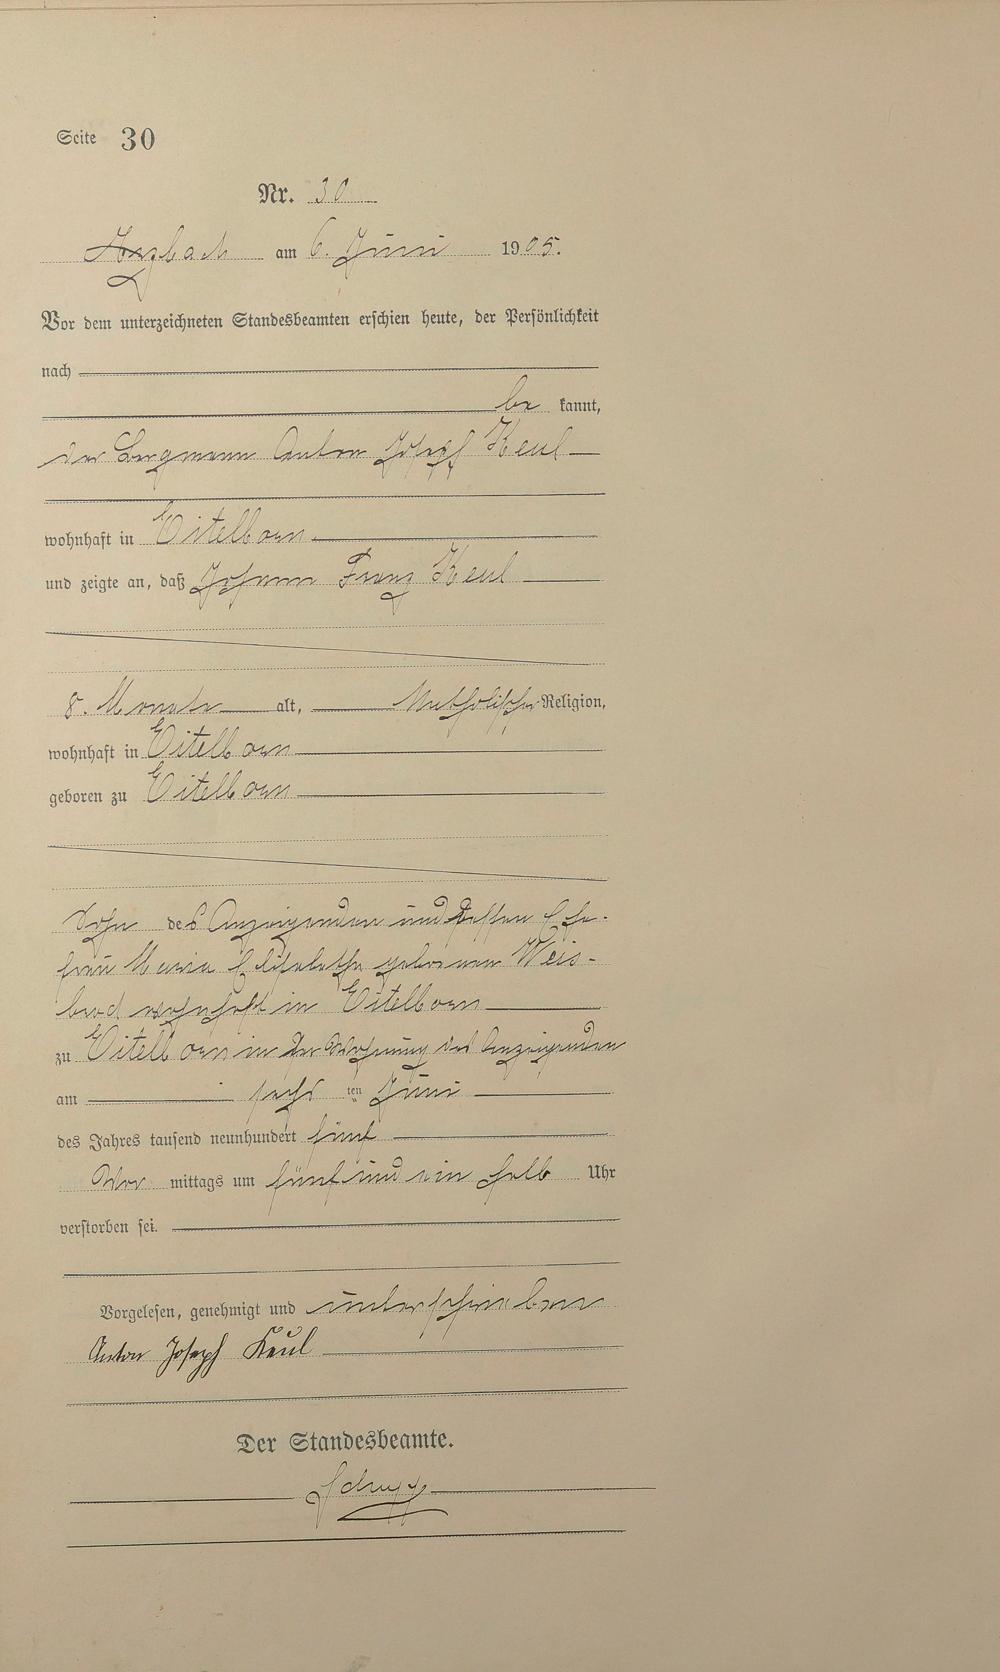 Seite 30
Nr. 30
Arzbach am 6. Juni 1905.
Vor dem unterzeichneten Standesbeamten erschien heute, der Persönlichkeit
nach
be kannt,
der Bergmann Anton Josepf Keul
wohnhaft in Eitelborn
und zeigte an, daß Johann Franz Keul
8. Monate alt, katholischer Religion,
wohnhaft in Eitelborn
geboren zu Eitelborn
Sohn des Anzeigenden und dessen Ehe-
frau Maria Elisabetha geborenen Weis-
brod wohnhaft in Eitelborn
zu Eitelborn in der Wohnung des Anzeigenden
am sechs ten Juni
des Jahres tausend neunhundert fünf
Vor mittags um fünf und ein halb Uhr
verstorben sei.
Vorgelesen, genehmigt und unterschrieben
Anton Joseph Keul
Der Standesbeamte.